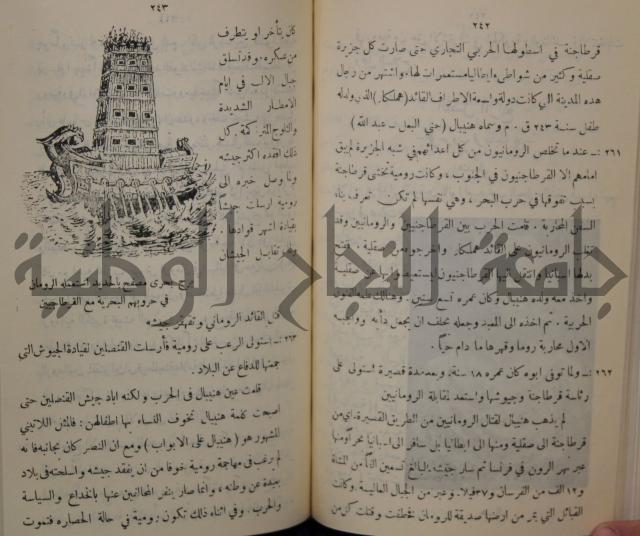 ٢٤٢
قرطاجنة في اسطولها الحربي التجاري حتى صارت كل جزيرة
صقلية وكثير من شواطىء ايطاليا مستعمرات لها. واشتهر من رجال
هذه المدينة التي كانت دولة واسعة الاطراف القائد (هملكار) الذي ولد له
طفل سنة ٢٤٣ ق . م وسماه هنيبال (حني البعل ـ عبد الله)
٢٦١ :ـ عند ما تخلص الرومانيون من كل اعدائهم في شبه الجزيرة لم يبق
امامهم الا القرطاجنيون في الجنوب ، وكانت رومية تخشى قرطاجنة
بسبب تفوقها في حرب البحر ، وهي نفسها لم تكن تعرف بناء
السفن الحربية . قامت الحرب بين القرطاجنيين والرومانيين وقد
الرومانيون على القائد هملكار واخرجوه من صقلية .
واخذ معه ولده هنيبال وكان عمره تسع سنين .
الحربية . ثم اخذه الى المعبد وجعله يحلف ان يجعل دأبه وواجبه
الاول محاربة روما وقهرها ما دام حياً .
٢٦٢ :ـ ولما توفي ابوه كان عمره ١٨ سنة، وبعد مدة قصيرة استولى على
رئاسة قرطاجنة وجيوشها واستعد لمقابلة الرومانيين
لم يذهب هنيبال لقتال الرومانيين من الطريق القصيرة، اي من
قرطاجنة الى صقلية ومنها الى ايطاليا بل سافر الى اسبانيا بحراً ومنها
عبر نهر الرون في فرنسا ثم سار جيشه البالغ تسعين الفاً من المشاة
و١٢ الف من الفرسان و٣٧ فيلاً وعبر من الجبال العالية، وكانت
القبائل التي يمر من ارضها صديقة للرومان فخطفت وقتلت كل من
٢٤٣
كان يتأخر او يتطرف
من عسكره، وقد تسلق
جبال الالب في ايام
الامطار الشديدة
والثلوج المتراكمة. كل
ذلك افقده اكثر جيشه
ولما وصل خبره الى
رومية ارسلت جيشاً
بقيادة اشهر قوادها .
ولما تقابل الجيشان
برج بحري مصفح بالحديد استعمله الرومان
في حروبهم البحرية مع القرطاجيين
قتل القائد الروماني وتقهقر جيشه
٢٦٣ :ـ استولى الرعب على رومية فأرسلت القنصلين لقيادة الجيوش التي
جمعتها للدفاع عن البلاد .
قلعت عين هنيبال في الحرب ولكنه اباد جيش القنصلين حتى
اصبحت كلمة هنيبال تخوف النساء بها اطفالهن : فالمثل اللاتيني
المشهور هو ( هنيبال على الابواب ) ومع ان النصر كان بجانبه فانه
لم يرغب في مهاجمة رومية خوفا من ان يفقد جيشه واسلحته في بلاد
بعيدة عن وطنه ، وانما صار ينفر المحالفين عنها بالخداع والسياسة
والحرب . وفي اثناء ذلك تكون رومية في حالة الحصار فتموت
جامعة النجاح الوطنية